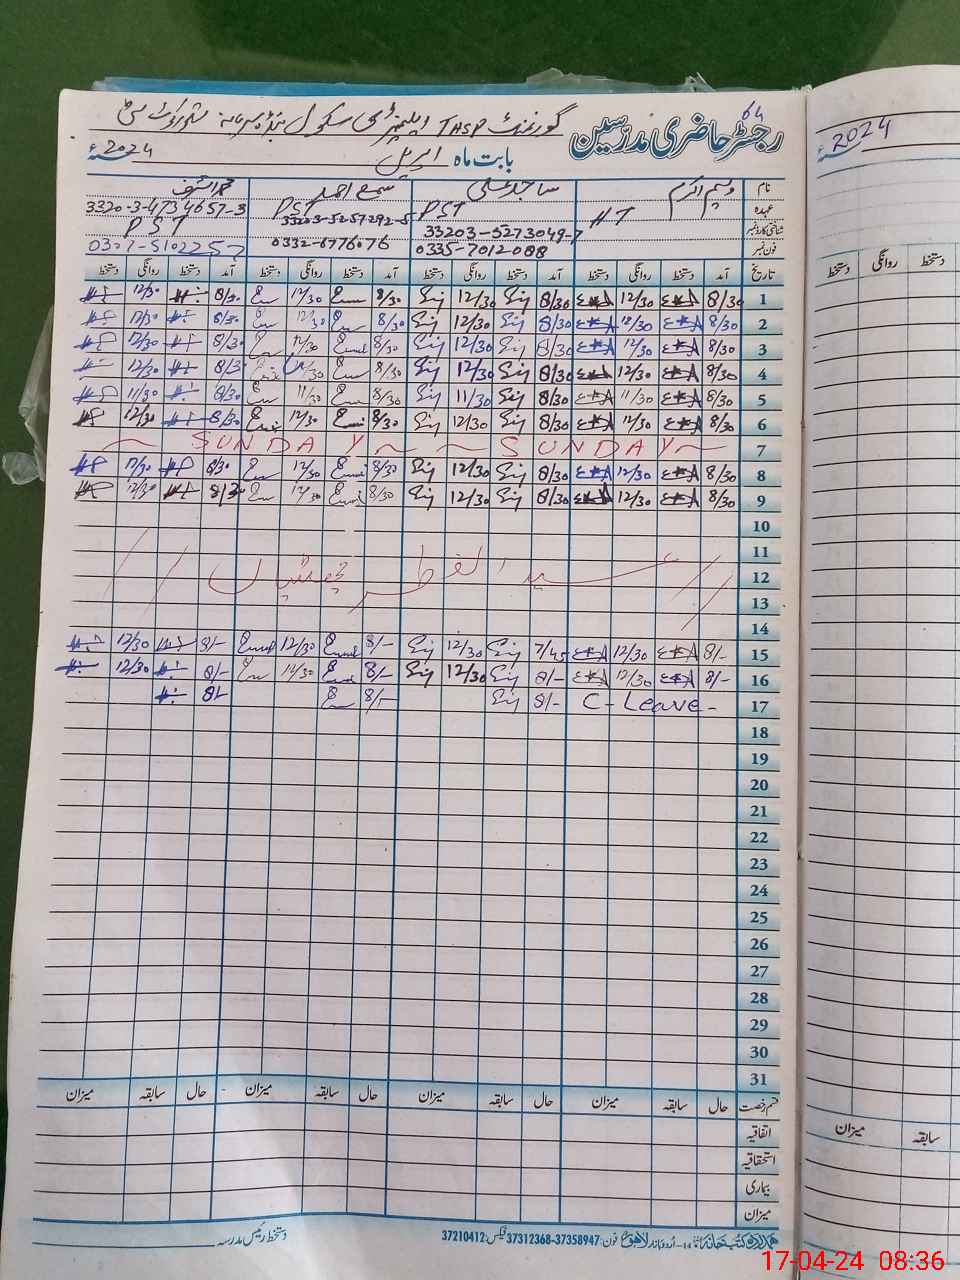 64
رجسٹر حاضری مدرسین
گورنمنٹ THSP ایلیمنٹری سکول
بابت ماہ اپریل 2024ء
نام وسیم اکرم ساجد علی سمیع احمد محمد اشرف
عہدہ HT PST PST PST
شناختی کارڈ نمبر 33203-5273049-7 33203-5257292-5 3320-3-4734657-3
فون نمبر 0335-7012-088 0332-6776076 0327-5102257
تاریخ آمد دستخط روانگی دستخط آمد دستخط روانگی دستخط آمد دستخط روانگی دستخط آمد دستخط روانگی دستخط
1 8/30 12/30 8/30 12/30 8/30 12/30 8/30 12/30
2 8/30 12/30 8/30 12/30 8/30 12/30 8/30 12/30
3 8/30 12/30 8/30 12/30 8/30 12/30 8/30 12/30
4 8/30 12/30 8/30 12/30 8/30 12/30 8/3 12/30
5 8/30 11/30 8/30 11/30 8/30 11/30 8/30 11/30
6 8/30 12/30 8/30 12/30 8/30 12/30 8/30 12/30
7 ~ SUNDAY ~ ~ SUNDAY ~
8 8/30 12/30 8/30 12/30 8/30 12/30 8/30 12/30
9 8/30 12/30 8/30 12/30 8/30 12/30 8/30 12/30
10
11
12 // عید الفطر چھٹیاں //
13
14
15 8/- 12/30 7/45 12/30 8/- 12/30 8/- 12/30
16 8/- 12/30 8/- 12/30 8/- 12/30 8/- 12/30
17 C- Leave - 8/- 8/- 8/-
18
19
20
21
22
23
24
25
26
27
28
29
30
31
قسم رخصت حال سابقہ میزان حال سابقہ میزان حال سابقہ میزان حال سابقہ میزان
اتفاقیہ
استحقاقیہ
بیماری
میزان
ہمدرد کتب خانہ 14-اردو بازار لاہور فون: 37358947-37312368 فیکس: 37210412
دستخط رئیس مدرسہ
2024ء
دستخط روانگی دستخط
سابقہ میزان
17-04-24 08:36